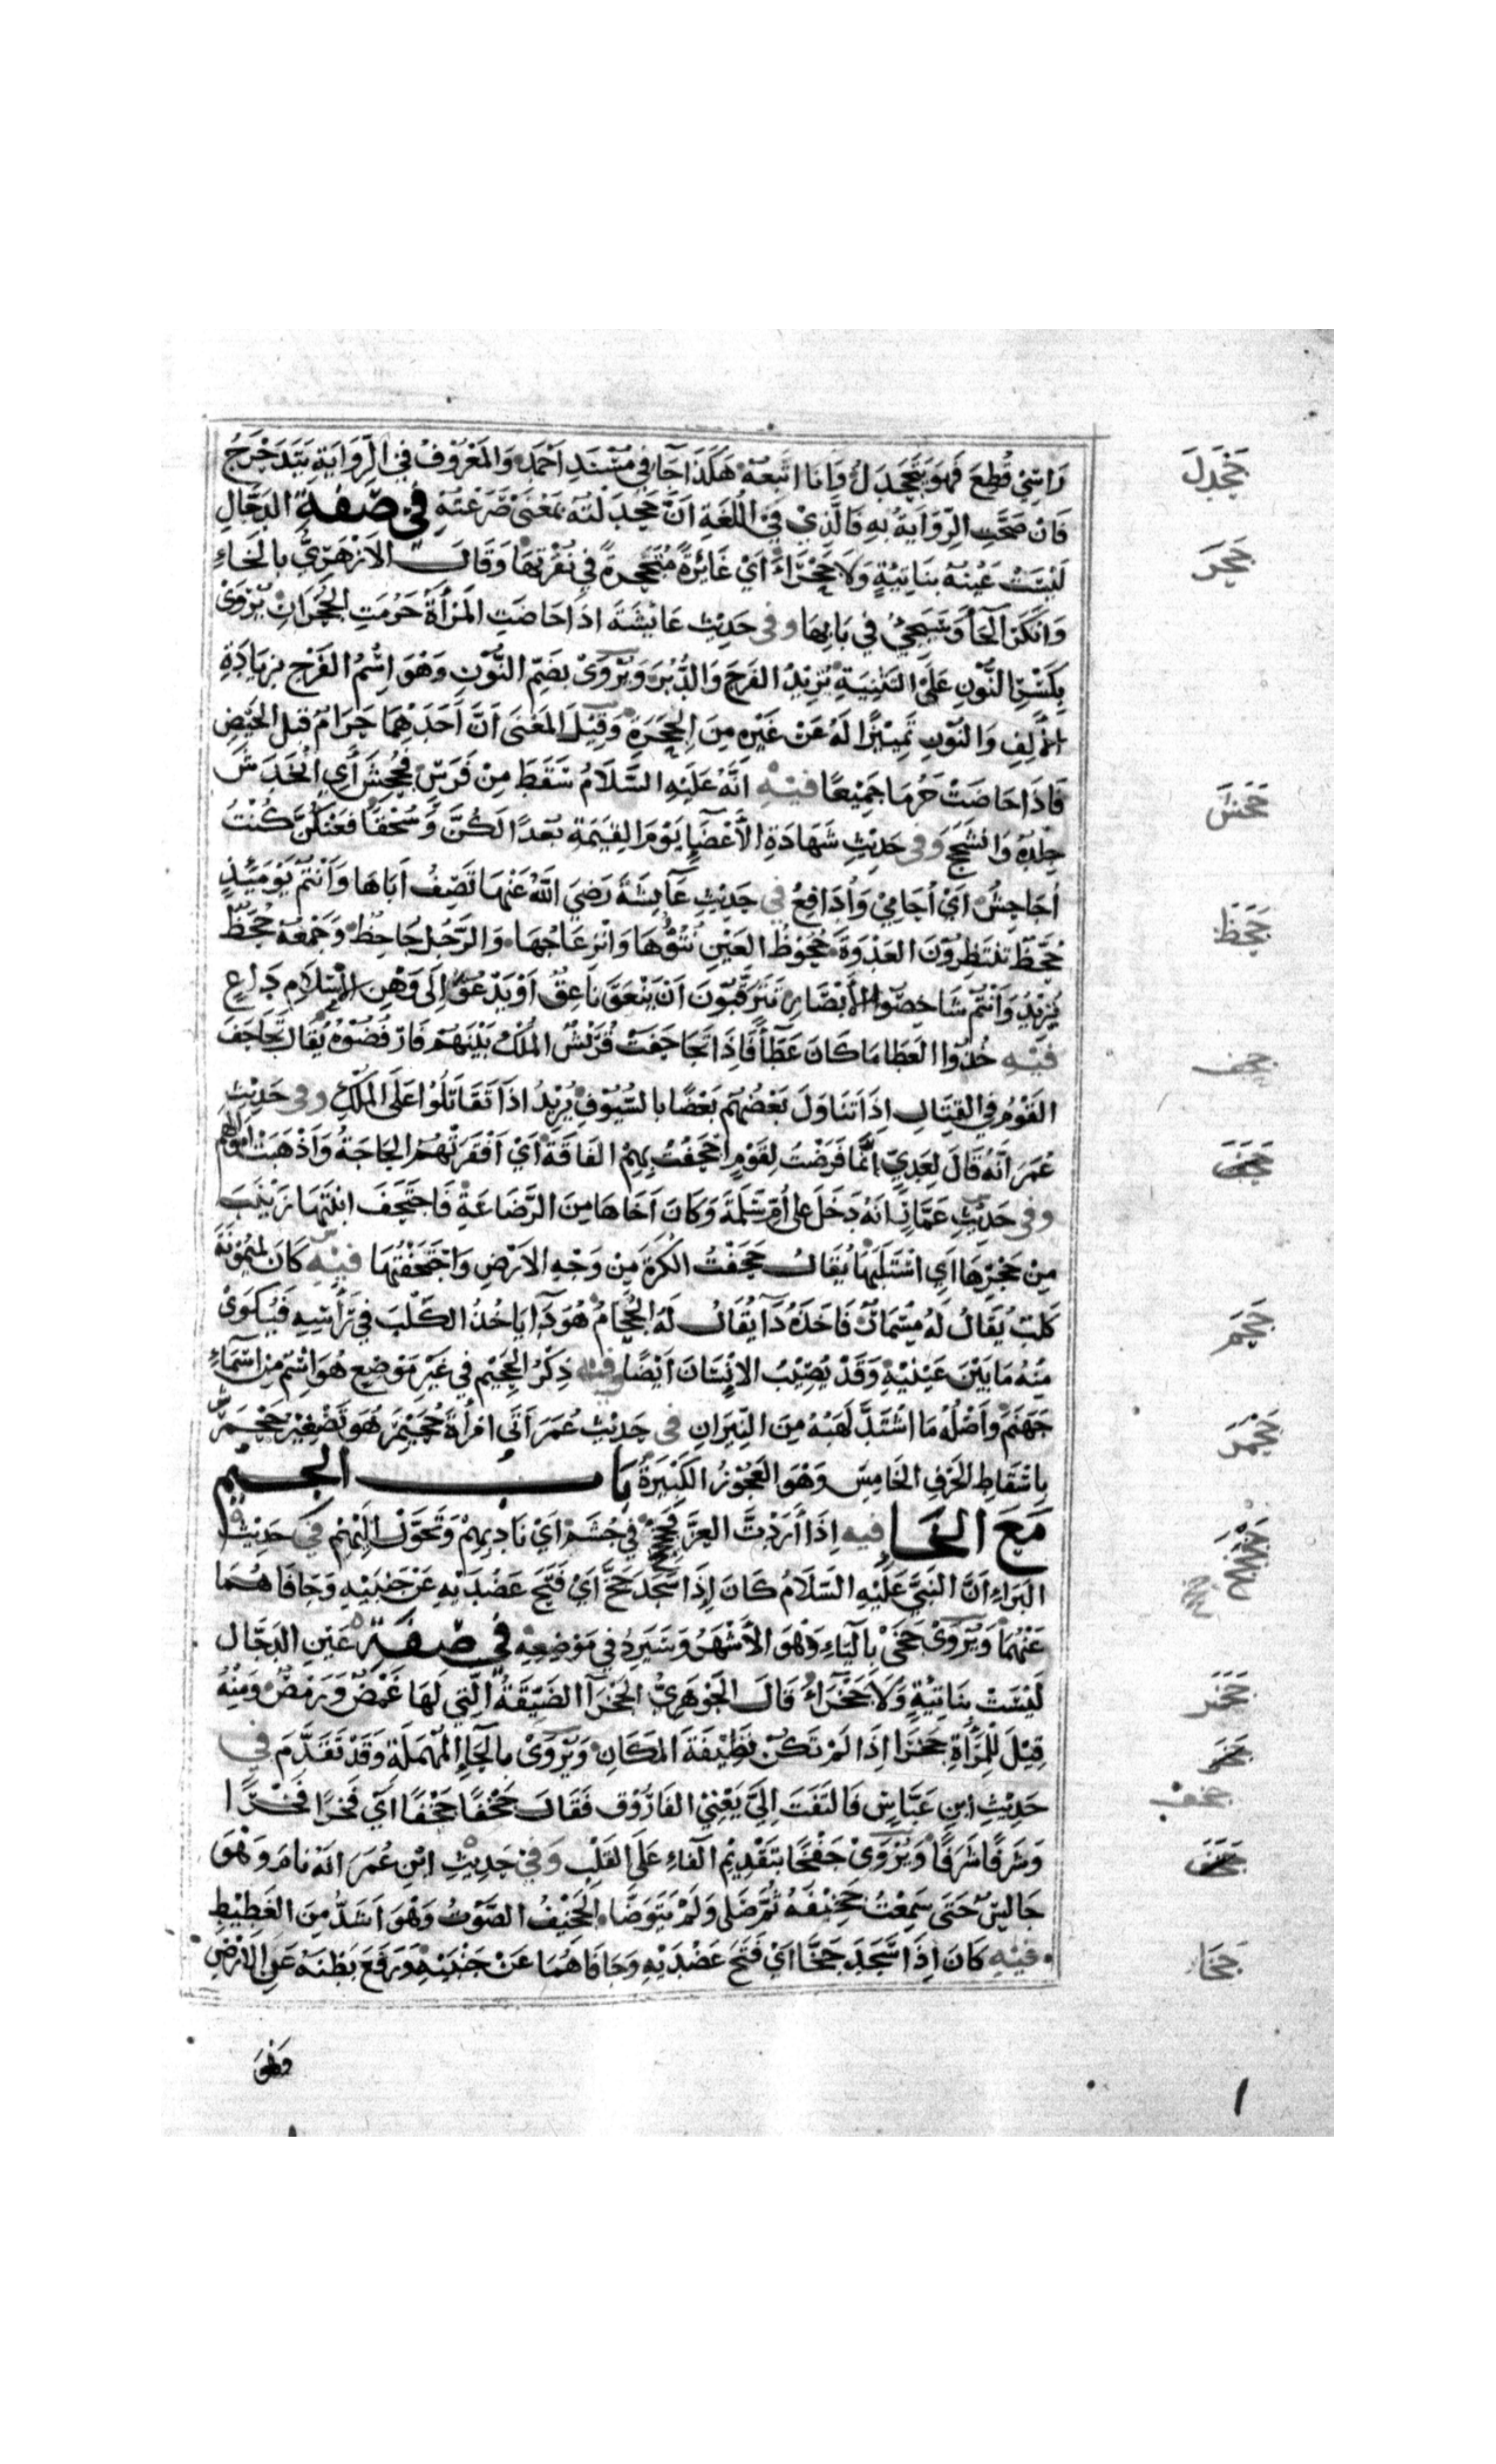 رَاسِيْ قُطِعَ فَهُوَ يَتَجَحْدَلُ وَانَا اتَّبِعهُ هَكَذَا جَآ في مُسْنَدِ اَحْمَد وَالمَعْرُوْفُ فِي الرِّوَايَةِ يَتَدَحْرَجُ
فَانْ صَحَّتِ الرِّوَايَةُ بِهِ فَالَّذِيْ فِيْ اللُّغَةِ اَنَّ جَحْدَلْتهُ بمَعْنَى صَرَعْتهُ فى صفة الدجّالِ
لَيْسَتْ عَيْنهُ بِنَاتِيَةٍ وَلَا جَحْرَاءَ اَيْ غَائِرَةً مُتَجَحِرَةً فِي نقْرتِهَا وَقَالَ الاَزْهَرِيُّ بِالخَاءِ
وَانكَرَ الحَآ وَسَيَجِيُ فِي بَابِهَا وفى حَدِيْثِ عَائِشَةَ اذَا حَاضَتِ المَرْأَةُ حَرُمَتِ الجُحْرَانِ يُرْوَىْ
بِكَسْرِ النُّوْنِ عَلَى التَثنِيَةِ تُرِيْدُ الفَرجَ وَالدُّبُرَ وَيُرْوَىْ بِضَمِّ النُّوْنِ وَهْوَ اِسْمُ الفَرْجِ بِزِيَادَةِ
الأَلِفِ وَالنّونِ تَمِيْيْزًا لَهُ عَنْ غَيْرِهِ مِنَ الجِحَرَةِ وَقِيْلَ المَعْنَى اَنَّ اَحَدَهُمَا حَرَامٌ قبل الحَيْضِ
فَاذَا حَاضَتْ حَرُمَا جَمِيْعًا فيْهِ اَنَّهُ عَلَيْهِ السَّلَامُ سَقَطَ مِنْ فَرَسٍ فَجُحِشَ أَيِ انْخَدَشَ
جِلْدُهُ وَانْسَحَجَ وَفى حَدِيْثِ شَهَادَةِ الأَعْضَآءِ يَوْمَ القِيَمَةِ بُعْدًا لَكُنَّ وَسُحْقًا فَعَنْكُنَّ كُنْتُ
اُجَاحِشُ اَيْ اُحَامِيْ وَاُدَافِعُ في حَدِيْثِ عَآئِشَةَ رَضِيَ اللهُ عَنْهَا تَصِفُ اَبَاهَا وَاَنْتُمْ يَوْمَئِذٍ
جُحَّظٌ تنتَظِرُوْنَ العَدْوَةَ جُحُوْظُ العَيْنِ نُتُوُّهَا وَانْزِعَاجُهَا وَالرَّجُلُ جَاحِظٌ وَجَمْعُهُ جُحَّظٌ
يُرِيْدُ وَاَنْتُمْ شَاخِصُوا الأَبْصَارِ تَتَرَقَّبُوْنَ اَنْ يَنْعَقَ نَاعِقٌ اَوْ يَدْعُوَ اِلَى وَهْنِ الاِسْلَامِ دَاعٍ
فيْهِ خُذُوا العَطَا مَا كَانَ عَطَآءً فَاِذَا تَجَاحَفَتْ قُرَيْشٌ المُلْكَ بَيْنَهُمْ فَارْفُضُوْهُ يُقَالُ تَجَاحَفَ
القَوْمُ فِي القِتَالِ اِذَا تَنَاوَلَ بَعْضُهُمْ بَعْضًا بِالسُّيُوْفِ يُرِيْدُ اذَا تَقَاتَلُوْا عَلَى المُلْكِ وفى حَدِيْثِ
عُمَرَ اَنَّهُ قَالَ لِعَدِيٍّ اَنَّمَا فَرَضْتُ لِقَوْمٍ اَجْحَفَتْ بِهِمْ الفَاقَةُ أَيْ اَفْقَرَتْهُمْ الحَاجَةُ وَاَذْهَبَتْ اموالهم
وفى حَدِيْثِ عَمَّارٍ اَنَّهُ دَخَلَ على اُمِّ سَلَمَةَ وَكَانَ اَخَاهَا مِنَ الرَّضَاعَةِ فَاجْتَحَفَ ابْنَتَهَا زَيْنَبَ
مِنْ حَجْرِهَا اَيِ اسْتَلَبَهَا يُقَالُ جَحَفْتُ الكُرَةَ مِنْ وَجْهِ الارْضِ وَاجْتَحَفْتُهَا فيْهِ كَانَ لمَيْمُوْنَةَ
كَلْبٌ يُقَالُ لَهُ مِسْمَارٌ فَاَخَذَهُ دَآءٌ يُقَالُ لَهُ الجُحَامُ هُوَ دَآءٌ يَاخُذُ الكَلْبَ فِي رَأْسِهِ فَيُكْوَىْ
مِنْهُ مَا بَيْنَ عَيْنَيْهِ وَقَدْ يُصِيْبُ الاِنْسَانَ اَيْضًا وفيه ذِكْرُ الجَحِيْمِ فِي غَيْرِ مَوْضِعٍ هُوَ اِسْمٌ مِنْ اَسْمَاءِ
جَهَنَّم وَاَصْلُهُ مَا اشْتَدَّ لَهَبُهُ مِنَ النِّيْرَانِ فى حَدِيْثِ عُمَرَ اَنَّى امْرَأَةٌ جُحَيْمِرٌ هُوَ تَصْغِيْرُ جَحْمَرِش
بِاسْقَاطِ الحَرْفِ الخَامِسِ وَهْوَ العَجُوْزُ الكَبِيْرَةُ بَابُ الجيم
مَعَ الخَاءِ فيه اِذَا أَرَدْتَ العِزَّ فَجَخْجِخْ فِي جُشَمْ اَيْ نَادِ بِهِمْ وَتَحَوَّلْ اِلَيْهِمْ فى حَدِيْثِ
البَرَاءِ اَنَّ النَبِيَّ عَلَيْهِ السَّلَامُ كَانَ اِذَا سَجَدَ جَخَّ اَيْ فَتَحَ عَضُدَيْهِ عَنْ جَنْبَيْهِ وَجَافَاهُمَا
عَنْهُمَا وَيُرْوَىْ جَخَّى بِاليَاءِ وَهْوَ الأَشْهَرُ وَسَيَرِدُ فِي مَوْضِعِهِ فى صفةِ عَيْنِ الدجّالِ
لَيْسَتْ بِنَاتِيَةٍ وَلَا جَخْرَاءَ قَالَ الجَوْهَرِيُّ الجَخْرَآ الضَيِّقَةُ الَّتِي لَهَا غَمَصٌ وَرَمَصٌ وَمِنْهُ
قِيْلَ لِلْمَرْأَةِ جَخْرَا اِذَا لَمْ تَكُنْ نَظِيْفَةَ المَكَانِ وَيُرْوَىْ بِالحَاءِ المُهْمَلَةِ وَقَدْ تَقَدَّمَ في
حَدِيْثِ ابْنِ عَبَّاسٍ فَالتَفَتَ اِلَيَّ يَعْنِيْ الفَارُوْق فَقَالَ جَخْفًا جَخْفًا اَيْ فَخْرًا فَخْرًا
وَشَرَفًا شَرَفًا وَيُرْوَىْ جَفْخًا بِتَقْدِيْمِ الفَاءِ عَلَى القَلْبِ وَفي حَدِيْثِ ابْنِ عُمَرَ اَنَّهُ نَامَ وَهْوَ
جَالِسٌ حَتَّى سَمِعْتُ جَخِيْفَهُ ثُمَّ صَلَّى وَلَمْ يَتَوَضَّا الجَخِيْفُ الصَّوْتُ وَهْوَ اَشَدُّ مِنَ الغَطِيْطِ
فيْهِ كَانَ اِذَا سَجَدَ جَخَّا اَيْ فَتَحَ عَضُدَيْهِ وَجَافَاهُمَا عَنْ جَنْبَيْهِ وَرَفَعَ بَطْنَهُ عَنِ الاَرْضِ
وَهْوَ
جَحْدَلَ
جَحَرَ
جَحَشَ
جَحَظَ
جحف
جَحَمَ
جَحْمَرَ
جَخَرَ
جخف
جَخَا